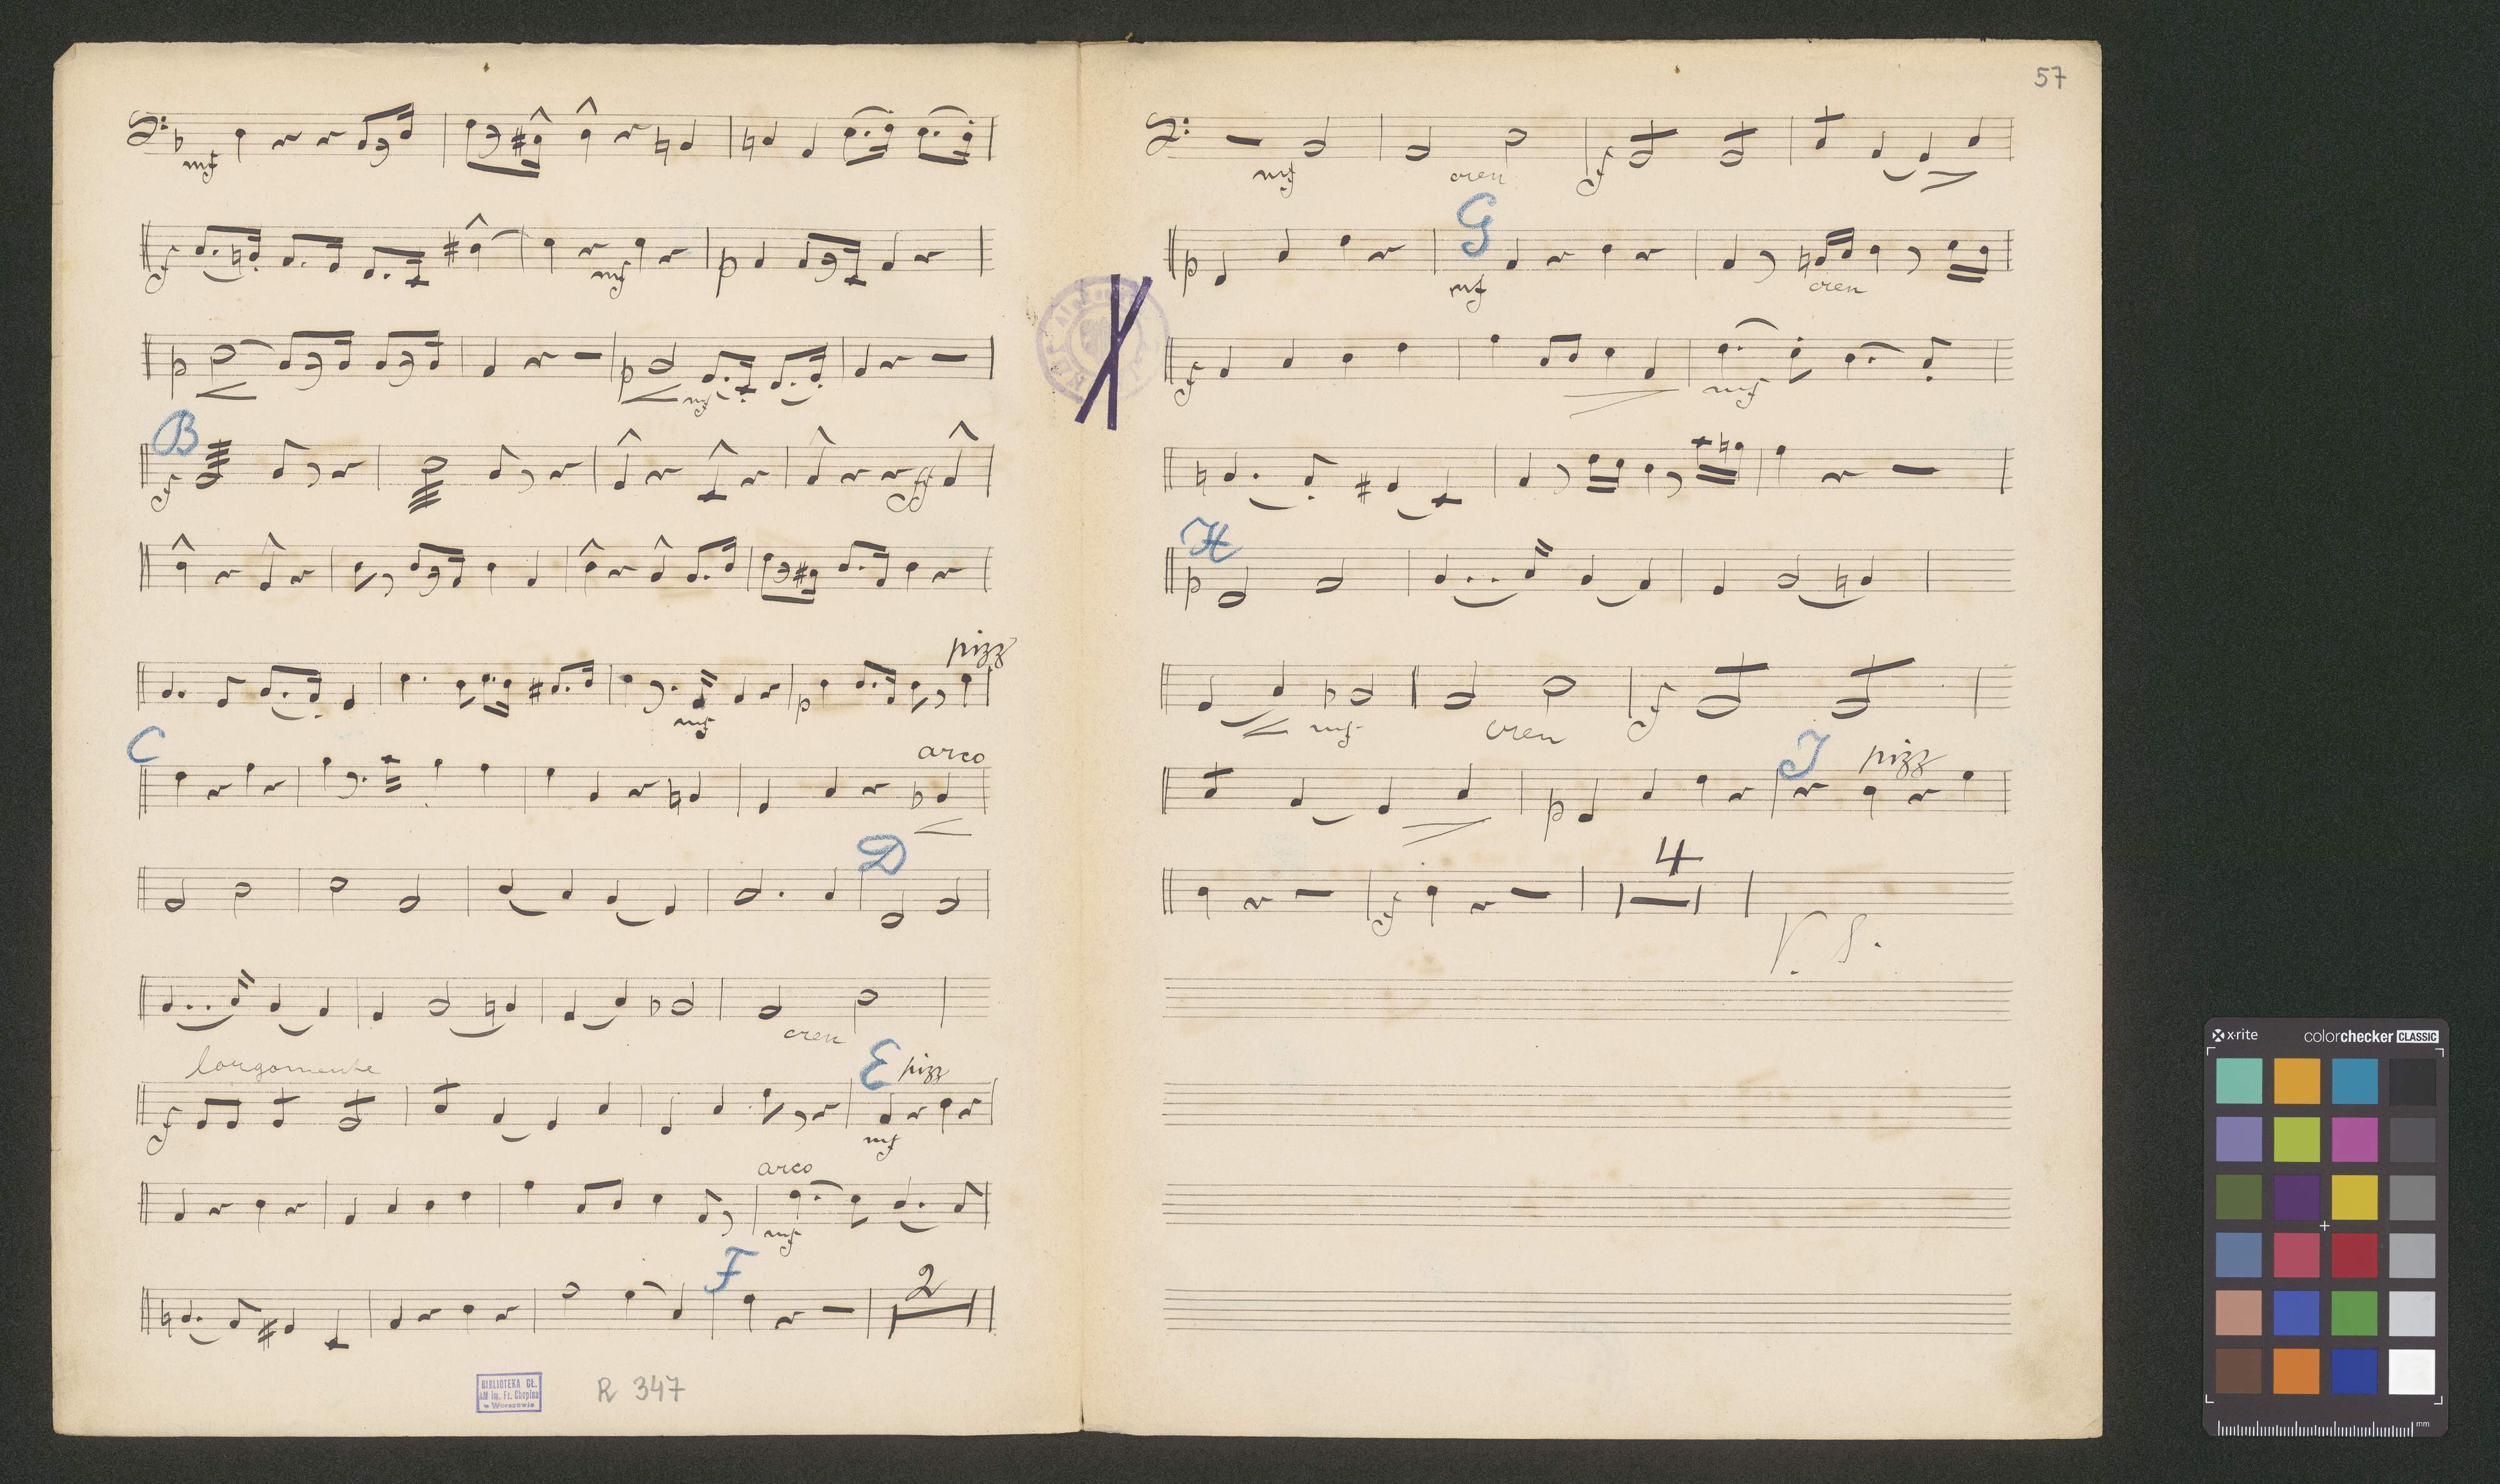 mf
f mf p
p p mf
B
f ff
pizz
mf p
C arco
D
cren
largomente E pizz
f mf
arco
mf
F 2
BIBLIOTEKA GŁ.
AM im. Fr. Chopina
w Warszawie
R 347
57
mf cren f
G
p mf cren
f mf
H
p
mf cren f
J pizz
p
4
f
V. S.
x-rite colorchecker CLASSIC
mm